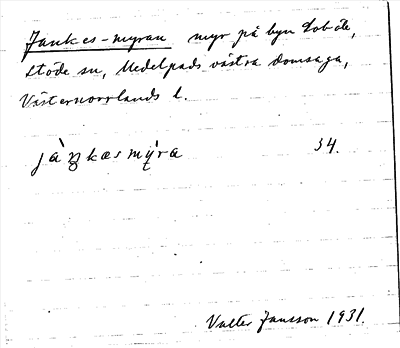 Jankes-myran myr på byn Lobole,
Stöde sn, Medelpads västra domsaga,
Västernorrlands l.
jàŋkæsmy̆ra 34.
Valter Jansson 1931